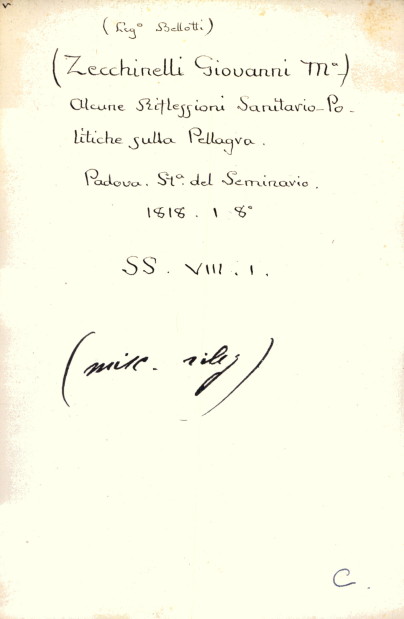 (Leg.º Bellotti)
(Zecchinelli Giovanni Mª)
Alcune Riflessioni Sanitario-Po-
litiche sulla Pellagra.
Padova. Stª. del Seminario.
1818. 1 8º
SS. VIII. 1.
(misc. rileg)
C.